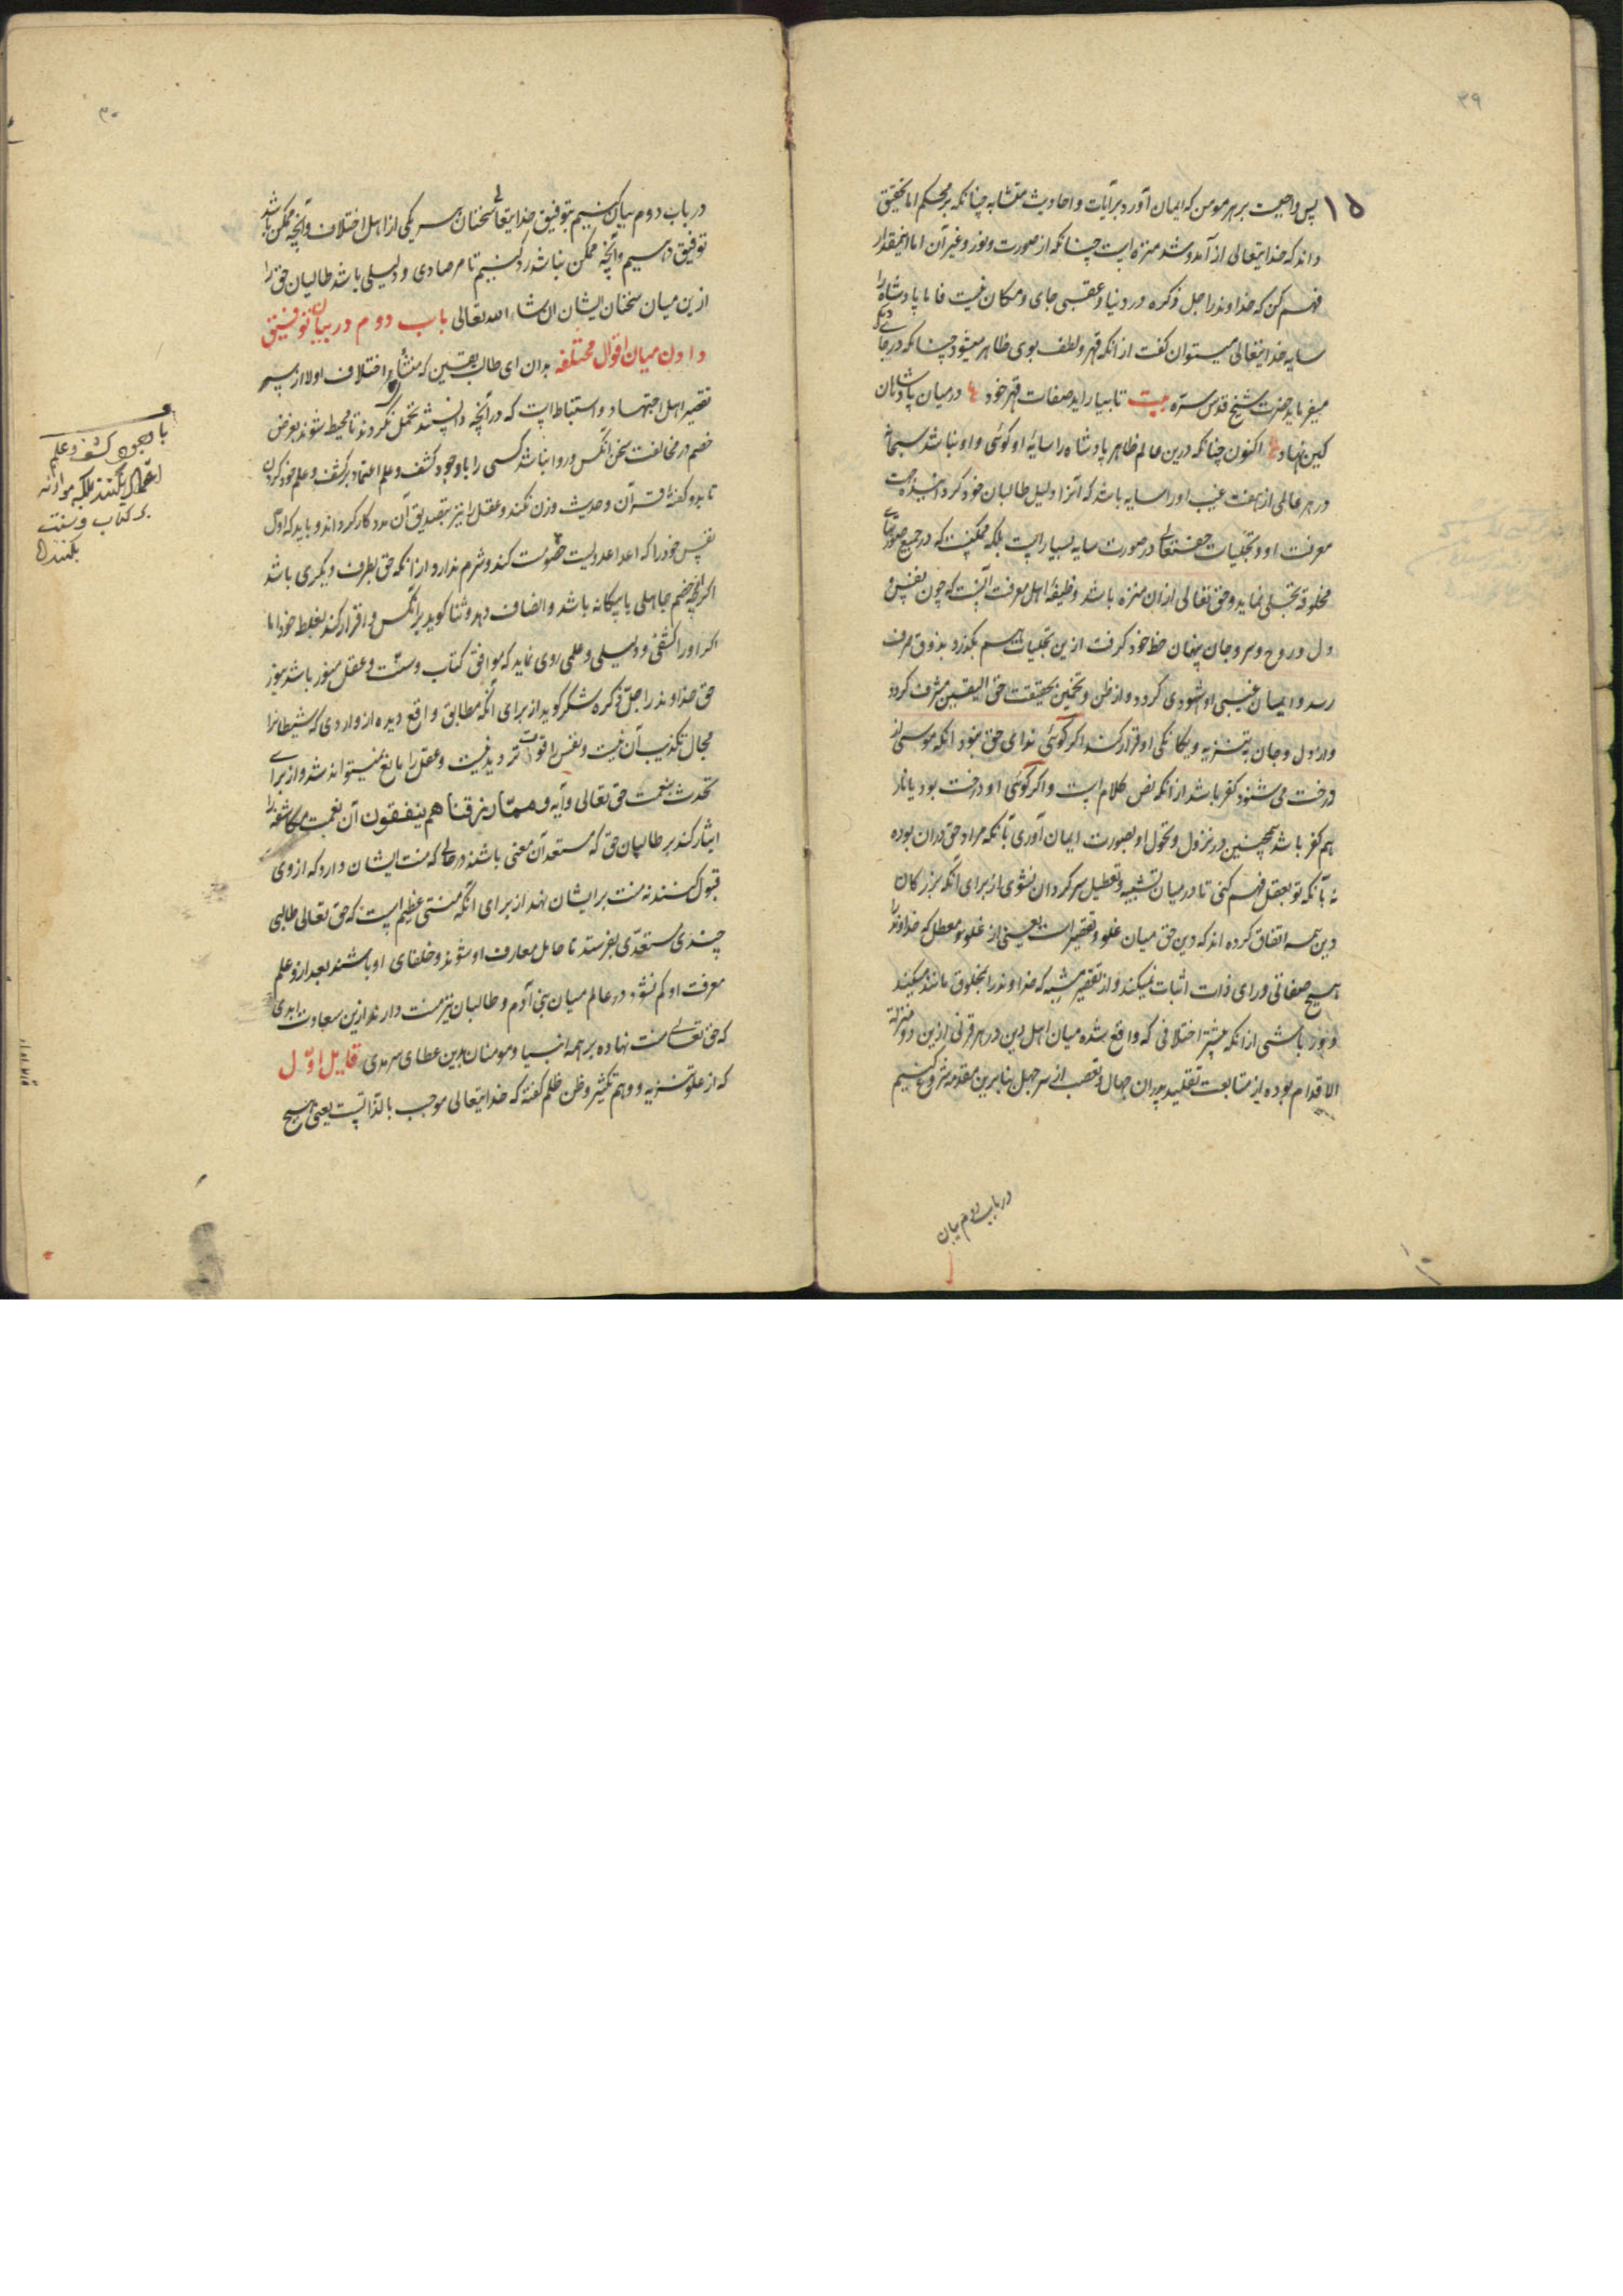 ۳۹
۱۵
پس واجبست بر هر مومن که ایمان آورد برآیات و احادیث متشابه چنانکه بر محکم اما تحقیق
داند که خدایتعالی از آمد و شد منزه است چنانکه از صورت و نور و غیر آن اما اینمقدار
فهم کن که خداوند را جل ذکره در دنیا و عقبی جای و مکان نیست فاما پادشاه را
سایه خدایتعالی میتوان گفت از انکه قهر و لطف بوی ظاهر میشود چنانکه در جای دیگر
میفرماید حضرت شیخ قدس سره بیت تا بیاراید صفات قهر خود در میان پادشاهان
کین نهاد اکنون چنانکه درین عالم ظاهر پادشاه را سایهٔ او گوئی و او نباشد
در هر عالمی از هفت غیب او را سایه باشد که آنرا دلیل طالبان خود گردانیده
معرفت او و تجلیات حقتعالی در صورت سایه بسیار است بلکه ممکنست که در جمیع صورتهای
مخلوقه تجلی نماید و حق تعالی ازان منزه باشد وظیفهٔ اهل معرفت آنست که چون نفس و
دل و روح و سر و جان حظ خود گرفت ازین تجلیات هم بگذرد بذوق صرف
رسد و ایمان غیبی او شهودی گردد و از ظن و تخمین بحقیقت حق الیقین مشرف گردد
و از دل و جان به تنزیه و یگانگی او اقرار کند اگر گوئی ندای حق نبود انکه موسی از
درخت می شنود کفر باشد از انکه نص کلام است و اگر گوئی او درخت بود یا نار
هم کفر باشد همچنین در نزول و تحول او بصورت ایمان آوری تا آنکه مراد حق دران بوده
نه بآنکه تو بعقل فهم کنی تا در میان تشبیه و تعطیل سرگردان نشوی از برای آنکه بزرگان
دین همه اتفاق کرده اند که دین حق میان غلو و تقصیر است یعنی از غلو معطل که خداوند را
هیچ صفاتی ورای ذات اثبات نمیکند و از تقصیر مشبه که خداوند را بمخلوق مانند میکند
دور باشی از انکه بیشتر اختلافی که واقع شده میان اهل دین در هر قرنی ازین دو مزلة
الاقدام بوده از متابعت تقلید پدران جهال و تعصب از سر جهل بنابرین مقدمه شروع کنیم
در باب دوم بیان
۳۰
در باب دوم بیان کنیم بتوفیق خدایتعالی سخنان هر یکی از اهل اختلاف و آنچه ممکن باشد
توفیق دهیم و آنچه ممکن نباشد رد کنیم تا مر صادی و دلیلی باشد طالبان حق را
ازین میان سخنان ایشان ان شاء الله تعالی باب دوم در بیان توفیق
دادن میان اقوال مختلفه بدان ای طالب یقین که منشاء اختلاف اولا از
تقصیر اهل اجتهاد و استنباط است که در آنچه دانستند تحمل نکردند تا محیط شوند بغرض
خصم در مخالفت سخن آنکس و روا نباشد کسی را باوجود کشف و علم اعتماد بر کشف و علم خود کردن
تا بدو کفهٔ قرآن و حدیث وزن نکند و عقل را نیز بتصدیق آن مددکار گرداند و باید که اول
نفس خود را که اعدا عدو است خصومت کند و شرم ندارد از انکه حق بطرف دیگری باشد
اگرچه خصم جاهلی یا بیگانه باشد و انصاف دهد و ثنا گوید برآنکس و اقرار کند بغلط خود اما
اگر او را کشفی و دلیلی و علمی روی نماید که موافق کتاب و سنت و عقل منور باشد
حق خداوند را جل ذکره شکر گوید از برای آنکه مطابق واقع دیده از واردی که شیطانرا
مجال تکذیب آن نیست و نفس را قوت تردید نیست و عقل را مانع نمیتواند شد و از برای
تحدث بنعمت حق تعالی و آیه ومما رزقناهم ینفقون آن نعمت مکاشفه را
ایثار کند بر طالبان حق که مستعد آن معنی باشند در حالی که منت ایشان دارد که از وی
قبول کنند نه منت بر ایشان نهد از برای آنکه منتی عظیم است که حق تعالی طالبی
چندی مستعدی بفرستد تا حامل معارف او شوند و خلفای او باشند بعد ازو علم
معرفت او کم نشود در عالم میان بنی آدم و طالبان نیز منت دارند ازین سعادت ابدی
که حق تعالی منت نهاده بر همه انبیا و مومنان بدین عطای سرمدی قایل اول
که از علو تنزیه و وهم تکثیر و ظن ظلم گفته که خدایتعالی موجب بالذاتست یعنی هیچ
باوجود کشف و علم
اعمال نکنند بلکه موازنه
بر کتاب و سنت
بکنند